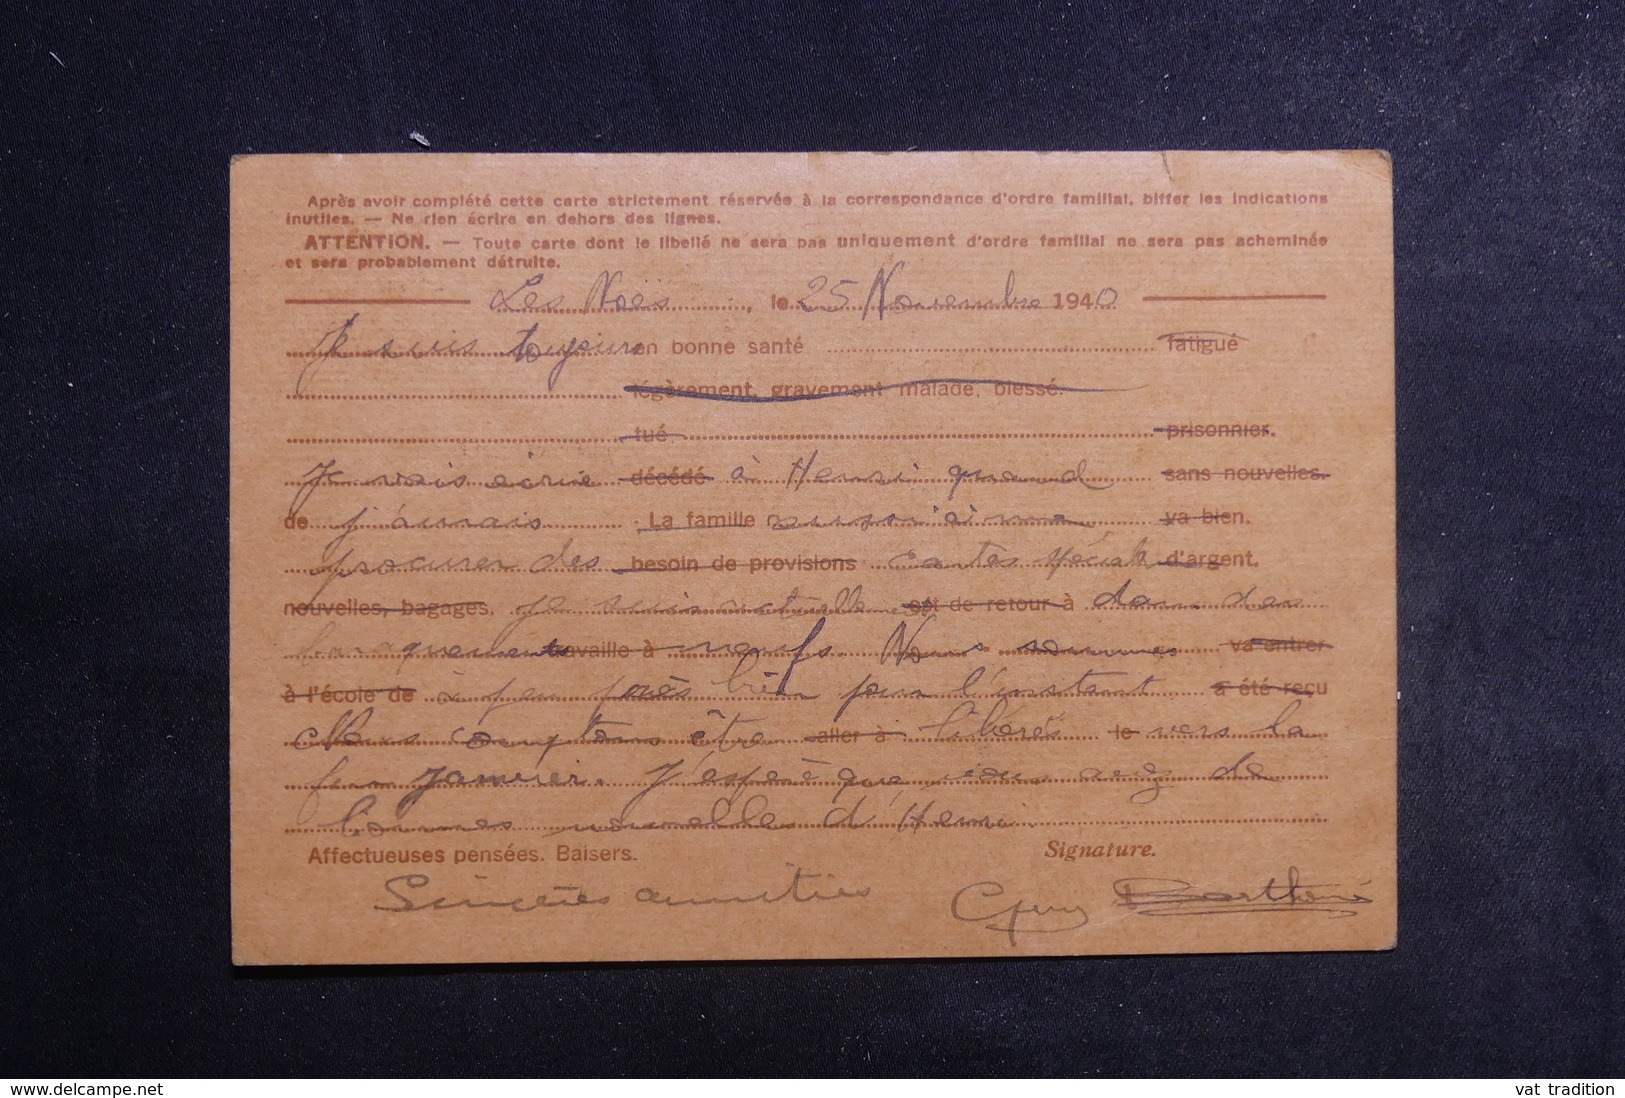 Après avoir complété cette carte strictement réservée à la correspondance d'ordre familial, biffer les indications
inutiles. — Ne rien écrire en dehors des lignes.
ATTENTION. — Toute carte dont le libellé ne sera pas uniquement d'ordre familial ne sera pas acheminée
et sera probablement détruite.
Les Noës, le 25 Novembre 1940
Je suis toujours en bonne santé fatigué
légèrement, gravement malade, blessé.
tué prisonnier.
Je vais écrire décédé à Henri quand sans nouvelles.
de j'aurais La famille va bien.
procurer des besoin de provisions cartes d'argent.
nouvelles, bagages. je suis est de retour à dans des
baraquements travaille à neufs. Nous sommes va entrer
à l'école de à peu près bien pour l'instant a été reçu
Nous comptons être aller à libérés le vers la
fin Janvier. J'espère que vous avez de
bonnes nouvelles d'Henri.
Affectueuses pensées. Baisers. Signature.
Sincères amitiés Guy
www.delcampe.net
vat tradition